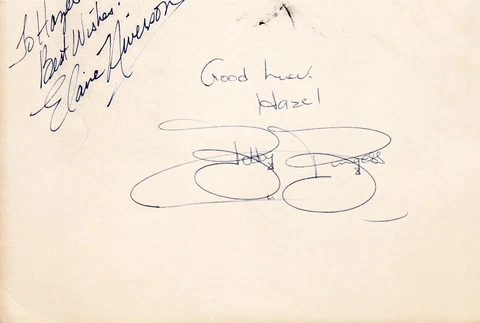 To Hazel
Best Wishes!
Elaine Niverson
Good Luck
Hazel
Bobby Burgess